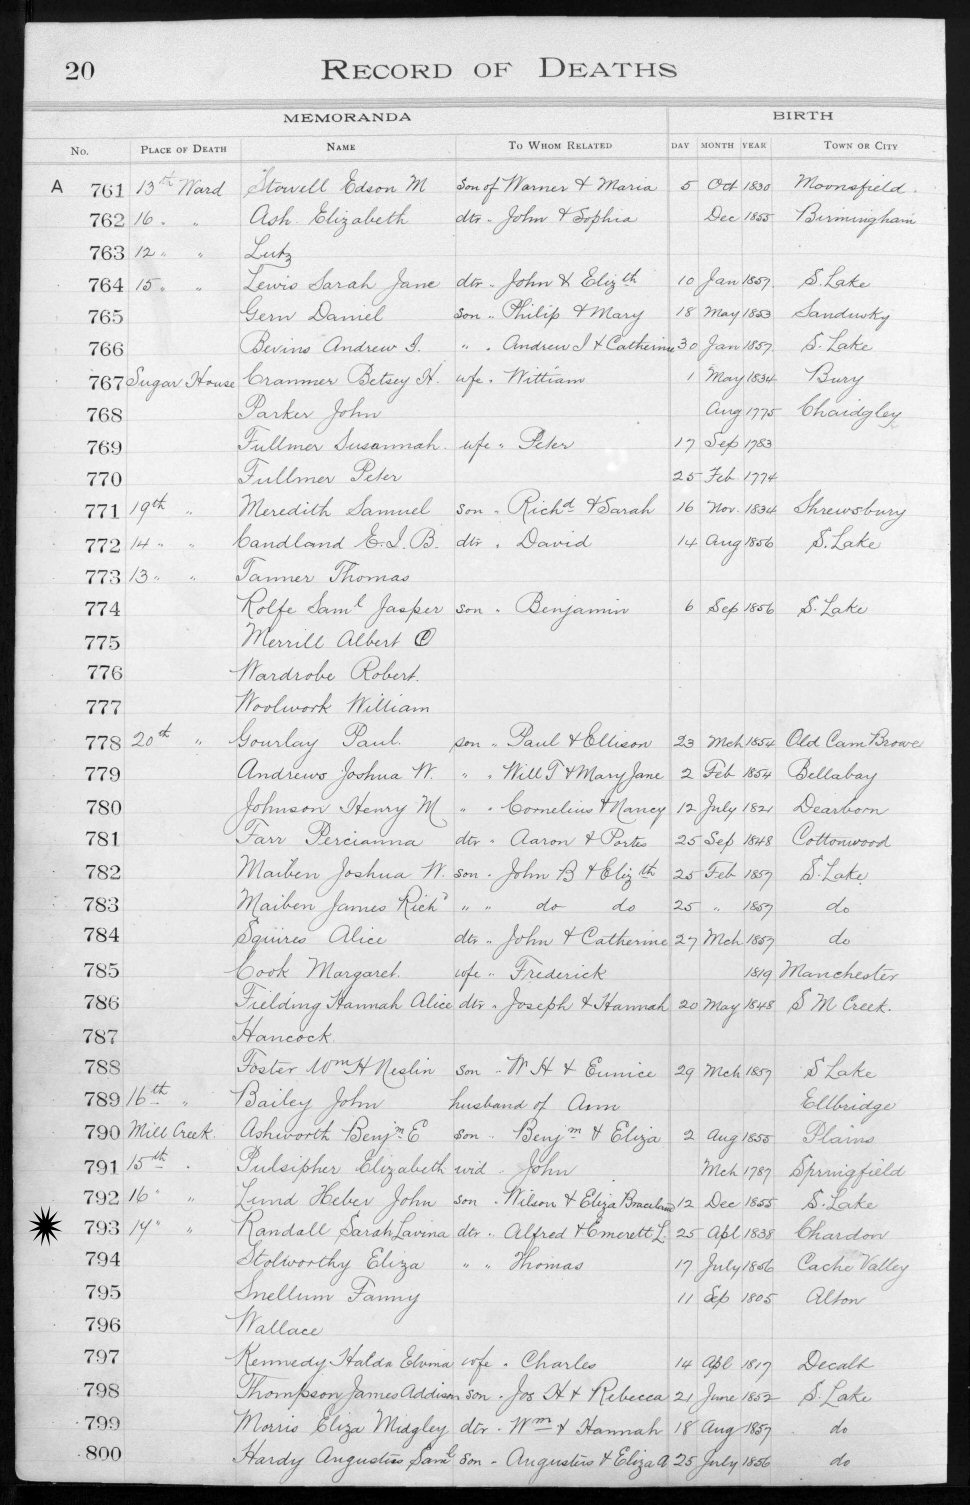 20 RECORD OF DEATHS
MEMORANDA BIRTH
No. PLACE OF DEATH NAME TO WHOM RELATED DAY MONTH YEAR TOWN OR CITY
A 761 13th Ward Stowell Edson M son of Warner & Maria 5 Oct 1830 Moonsfield.
762 16 " " Ash Elizabeth dtr " John & Sophia Dec 1855 Birmingham
763 12 " " Lutz
764 15 " " Lewis Sarah Jane dtr " John & Elizth 10 Jan 1857 S. Lake
765 Gern Daniel son " Philip & Mary 18 May 1853 Sandusky
766 Bevins Andrew I. " " Andrew I & Catherine 30 Jan 1857 S. Lake
767 Sugar House Cranmer Betsey H. wfe " William 1 May 1834 Bury
768 Parker John Aug 1775 Chaidgley
769 Fullmer Susannah wfe " Peter 17 Sep 1783
770 Fullmer Peter 25 Feb 1774
771 19th " Meredith Samuel son " Richd & Sarah 16 Nov. 1834 Shrewsbury
772 14 " " Candland E. I. B. dtr " David 14 Aug 1856 S. Lake
773 13 " " Tanner Thomas
774 Rolfe Saml Jasper son " Benjamin 6 Sep 1856 S. Lake
775 Merrill Albert
776 Wardrobe Robert.
777 Woolwork William
778 20th " Gourlay Paul. son " Paul & Ellison 23 Mch 1854 Old Cam Browe
779 Andrews Joshua W. " " Will T & Mary Jane 2 Feb 1854 Bellabay
780 Johnson Henry M " " Cornelius & Nancy 12 July 1821 Dearborn
781 Farr Percianna dtr " Aaron & Portis 25 Sep 1848 Cottonwood
782 Maiben Joshua W. son " John B & Elizth 25 Feb 1857 S. Lake
783 Maiben James Richd " " do do 25 " 1857 do
784 Squires Alice dtr " John & Catherine 27 Mch 1857 do
785 Cook Margaret. wfe " Frederick 1819 Manchester
786 Fielding Hannah Alice dtr " Joseph & Hannah 20 May 1848 S M Creek.
787 Hancock
788 Foster Wm H Neslin son " W H & Eunice 29 Mch 1857 S Lake
789 16th " Bailey John husband of Ann Ellbridge
790 Mill Creek. Ashworth Benjm E son " Benjm & Eliza 2 Aug 1855 Plains
791 15th " Pulsipher Elizabeth wid " John Mch 1787 Springfield
792 16 " " Lund Heber John son " Wilson & Eliza 12 Dec 1855 S. Lake
793 14 " " Randall Sarah Lavina dtr " Alfred & Emerett L. 25 Apl 1838 Chardon
794 Stolworthy Eliza " " Thomas 17 July 1856 Cache Valley
795 Snellum Fanny 11 Sep 1805 Alton
796 Wallace
797 Kennedy Halda Elvina wfe " Charles 14 Apl 1817 Decalb
798 Thompson James Addison son " Jos H & Rebecca 21 June 1852 S. Lake
799 Morris Eliza Midgley dtr " Wm & Hannah 18 Aug 1857 do
800 Hardy Augustus Saml son " Augustus & Eliza A 25 July 1856 do